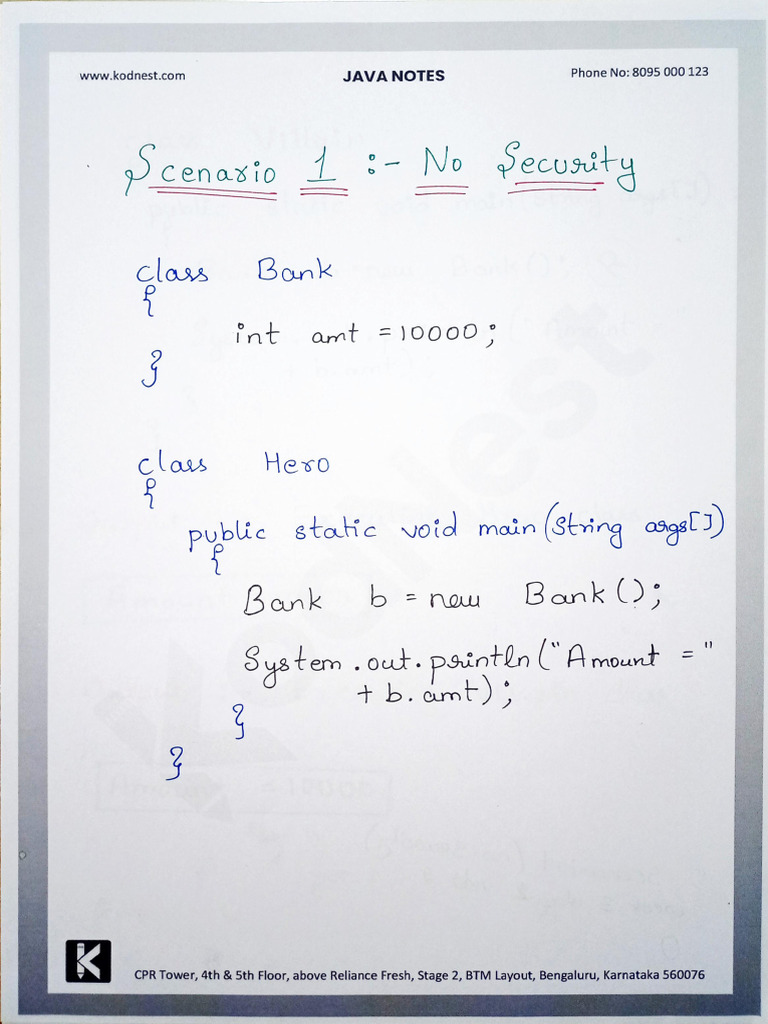 www.kodnest.com JAVA NOTES Phone No: 8095 000 123
Scenario 1 :- No Security
class Bank
{
int amt = 10000;
}
class Hero
{
public static void main(String args[])
{
Bank b = new Bank();
System.out.println("Amount = "
+ b.amt);
}
}
K
CPR Tower, 4th & 5th Floor, above Reliance Fresh, Stage 2, BTM Layout, Bengaluru, Karnataka 560076